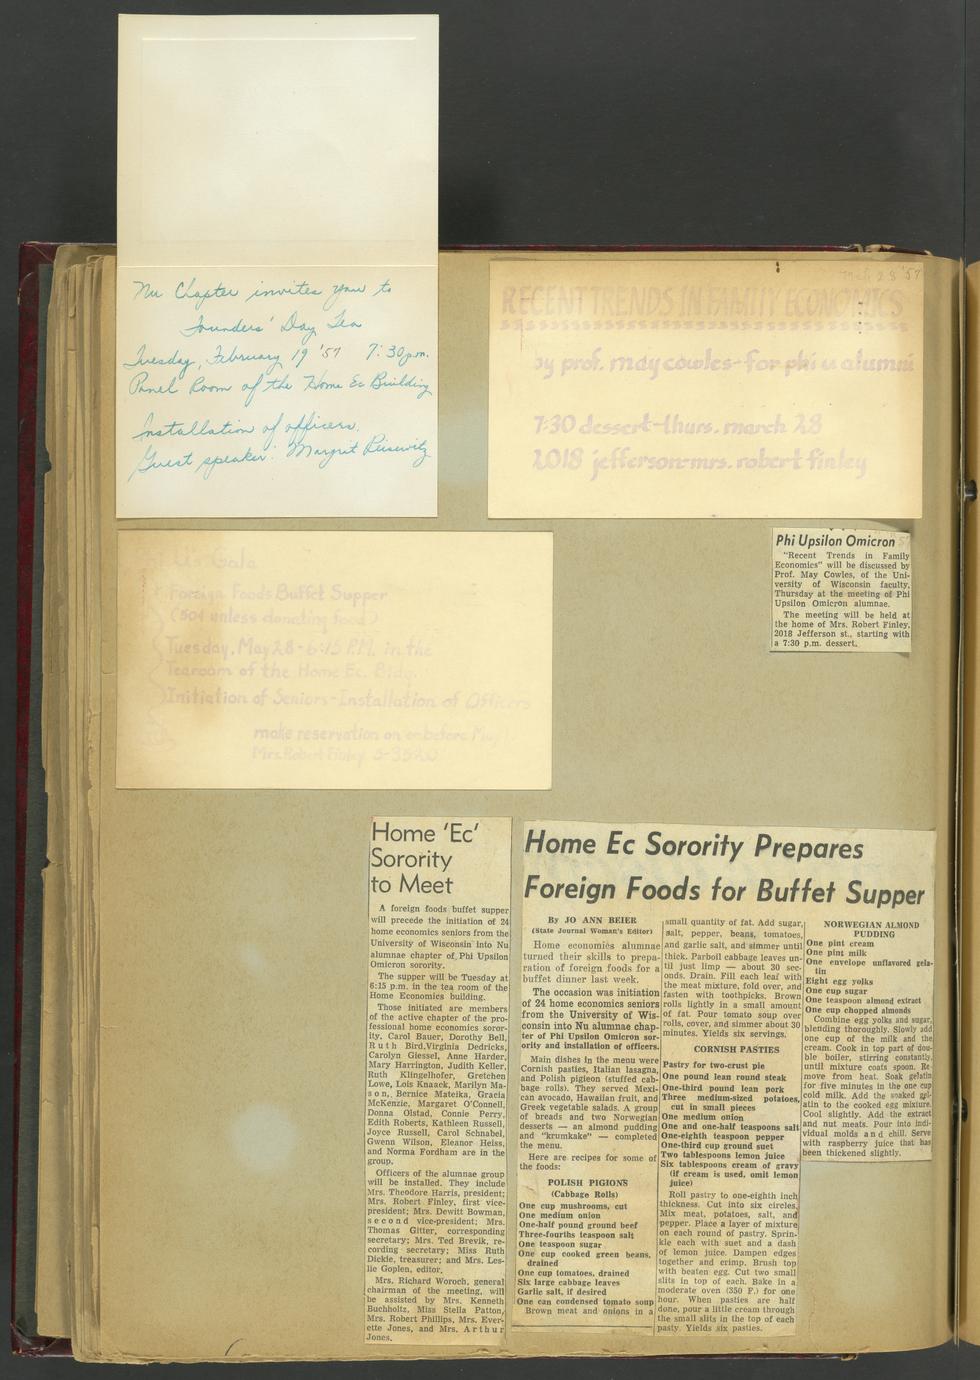 Nu Chapter invites you to
Founders' Day Tea
Tuesday, February 19 '57 7:30 p.m.
Panel Room of the Home Ec Building
Installation of officers.
Guest speaker: Margrit
March 28 '57
RECENT TRENDS IN FAMILY ECONOMICS
by prof. may cowles-for phi u alumni
7:30 dessert-thurs. march 28
2018 jefferson-mrs. robert finley
Phi Upsilon Omicron
"Recent Trends in Family
Economics" will be discussed by
Prof. May Cowles, of the Uni-
versity of Wisconsin faculty,
Thursday at the meeting of Phi
Upsilon Omicron alumnae.
The meeting will be held at
the home of Mrs. Robert Finley,
2018 Jefferson st., starting with
a 7:30 p.m. dessert.
Gala
Foreign Foods Buffet Supper
(50¢ unless donating food)
Tuesday, May 28-6:15 P.M. in the
Tearoom of the Home Ec. Bldg.
Initiation of Seniors-Installation of Officers
make reservation on or before May
Mrs. Robert Finley 5-3520
Home 'Ec'
Sorority
to Meet
A foreign foods buffet supper
will precede the initiation of 24
home economics seniors from the
University of Wisconsin into Nu
alumnae chapter of Phi Upsilon
Omicron sorority.
The supper will be Tuesday at
6:15 p.m. in the tea room of the
Home Economics building.
Those initiated are members
of the active chapter of the pro-
fessional home economics soror-
ity, Carol Bauer, Dorothy Bell,
Ruth Bird, Virginia Dedricks,
Carolyn Giessel, Anne Harder,
Mary Harrington, Judith Keller,
Ruth Klingelhofer, Gretchen
Lowe, Lois Knaack, Marilyn Ma-
son, Bernice Mateika, Gracia
McKenzie, Margaret O'Connell,
Donna Olstad, Connie Perry,
Edith Roberts, Kathleen Russell,
Joyce Russell, Carol Schnabel,
Gwenn Wilson, Eleanor Heiss,
and Norma Fordham are in the
group.
Officers of the alumnae group
will be installed. They include
Mrs. Theodore Harris, president;
Mrs. Robert Finley, first vice-
president; Mrs. Dewitt Bowman,
second vice-president; Mrs.
Thomas Gitter, corresponding
secretary; Mrs. Ted Brevik, re-
cording secretary; Miss Ruth
Dickie, treasurer; and Mrs. Les-
lie Goplen, editor.
Mrs. Richard Woroch, general
chairman of the meeting, will
be assisted by Mrs. Kenneth
Buchholtz, Miss Stella Patton,
Mrs. Robert Phillips, Mrs. Ever-
ette Jones, and Mrs. Arthur
Jones.
Home Ec Sorority Prepares
Foreign Foods for Buffet Supper
By JO ANN BEIER
(State Journal Woman's Editor)
Home economics alumnae
turned their skills to prepa-
ration of foreign foods for a
buffet dinner last week.
The occasion was initiation
of 24 home economics seniors
from the University of Wis-
consin into Nu alumnae chap-
ter of Phi Upsilon Omicron sor-
ority and installation of officers.
Main dishes in the menu were
Cornish pasties, Italian lasagna,
and Polish pigieon (stuffed cab-
bage rolls). They served Mexi-
can avocado, Hawaiian fruit, and
Greek vegetable salads. A group
of breads and two Norwegian
desserts — an almond pudding
and "krumkake" — completed
the menu.
Here are recipes for some of
the foods:
POLISH PIGIONS
(Cabbage Rolls)
One cup mushrooms, cut
One medium onion
One-half pound ground beef
Three-fourths teaspoon salt
One teaspoon sugar
One cup cooked green beans,
drained
One cup tomatoes, drained
Six large cabbage leaves
Garlic salt, if desired
One can condensed tomato soup
Brown meat and onions in a
small quantity of fat. Add sugar,
salt, pepper, beans, tomatoes,
and garlic salt, and simmer until
thick. Parboil cabbage leaves un-
til just limp — about 30 sec-
onds. Drain. Fill each leaf with
the meat mixture, fold over, and
fasten with toothpicks. Brown
rolls lightly in a small amount
of fat. Pour tomato soup over
rolls, cover, and simmer about 30
minutes. Yields six servings.
CORNISH PASTIES
Pastry for two-crust pie
One pound lean round steak
One-third pound lean pork
Three medium-sized potatoes,
cut in small pieces
One medium onion
One and one-half teaspoons salt
One-eighth teaspoon pepper
One-third cup ground suet
Two tablespoons lemon juice
Six tablespoons cream of gravy
(if cream is used, omit lemon
juice)
Roll pastry to one-eighth inch
thickness. Cut into six circles.
Mix meat, potatoes, salt, and
pepper. Place a layer of mixture
on each round of pastry. Sprin-
kle each with suet and a dash
of lemon juice. Dampen edges
together and crimp. Brush top
with beaten egg. Cut two small
slits in top of each. Bake in a
moderate oven (350 F.) for one
hour. When pasties are half
done, pour a little cream through
the small slits in the top of each
pasty. Yields six pasties.
NORWEGIAN ALMOND
PUDDING
One pint cream
One pint milk
One envelope unflavored gela-
tin
Eight egg yolks
One cup sugar
One teaspoon almond extract
One cup chopped almonds
Combine egg yolks and sugar,
blending thoroughly. Slowly add
one cup of the milk and the
cream. Cook in top part of dou-
ble boiler, stirring constantly,
until mixture coats spoon. Re-
move from heat. Soak gelatin
for five minutes in the one cup
cold milk. Add the soaked gel-
atin to the cooked egg mixture.
Cool slightly. Add the extract
and nut meats. Pour into indi-
vidual molds and chill. Serve
with raspberry juice that has
been thickened slightly.